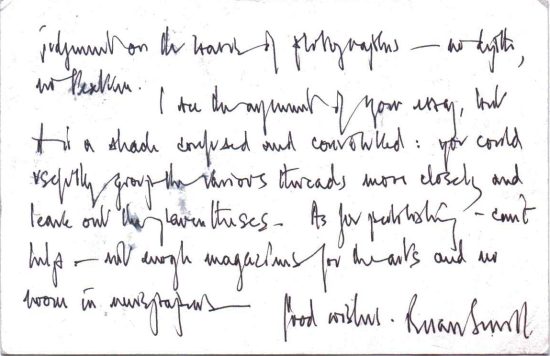 judgment on the basis of photographs — no depth,
no texture.
I see the argument of your essay, but
it is a shade confused and convoluted: you could
usefully group the various threads more closely and
leave out the parentheses — As for publishing — can't
help — not enough magazines for the arts and no
room in newspapers —
Good wishes. Brian Sewell